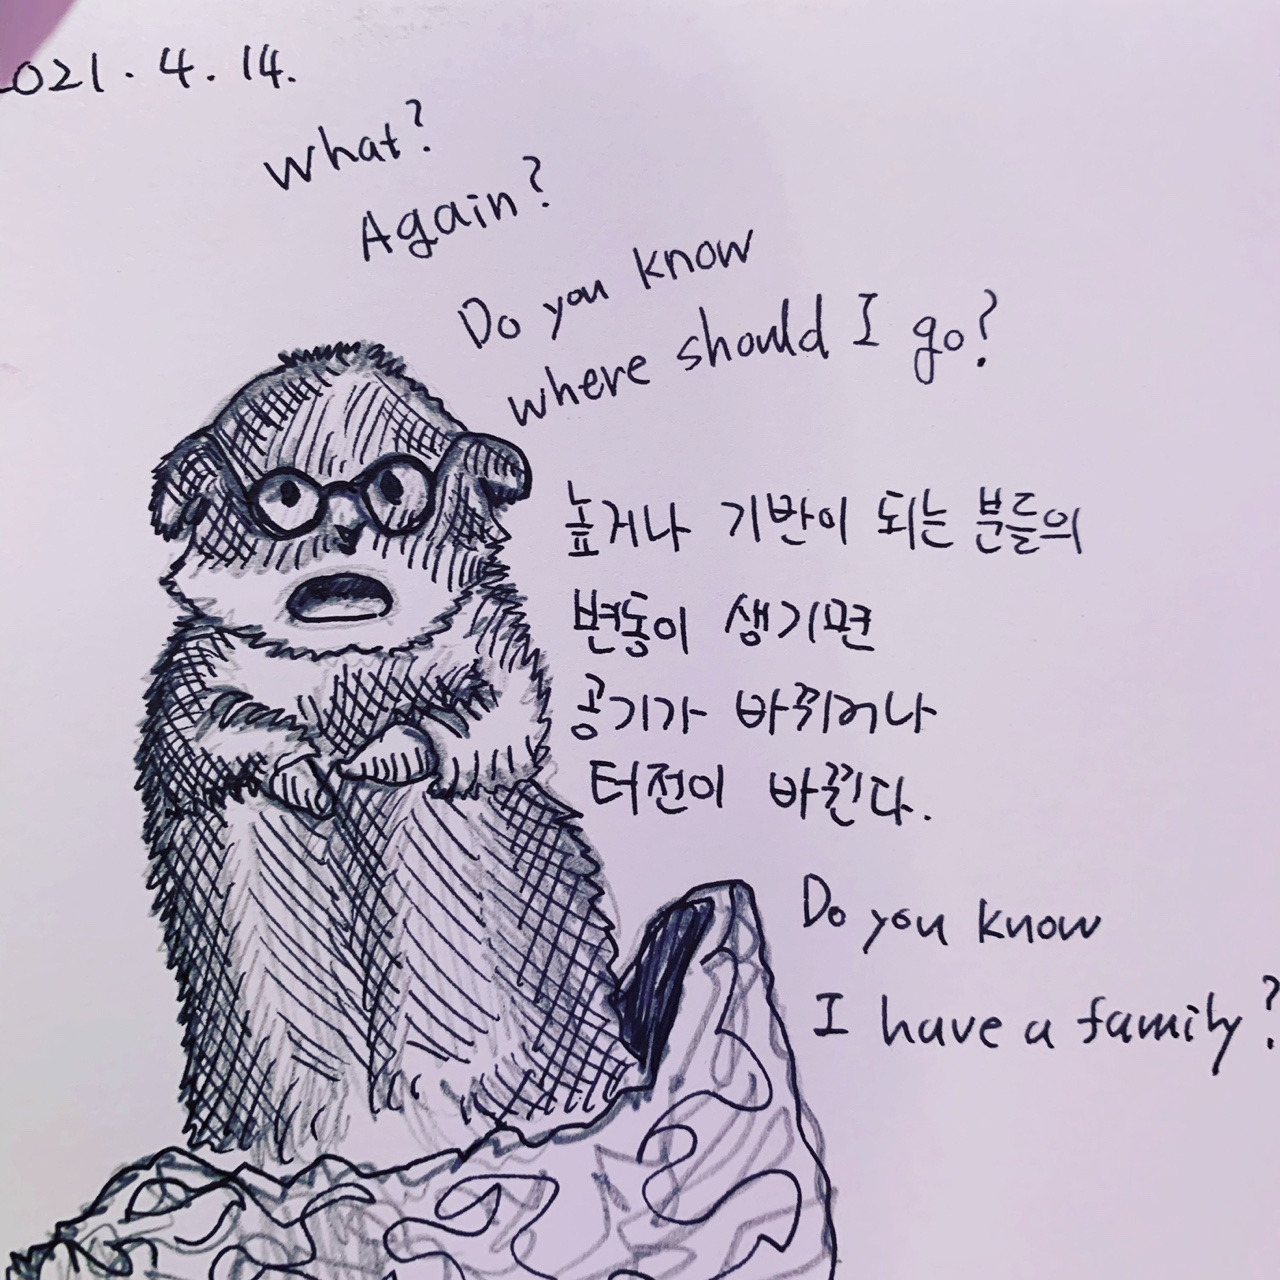 2021. 4. 14.
What?
Again?
Do you know
where should I go?
높거나 기반이 되는 분들의
변동이 생기면
공기가 바뀌거나
터전이 바뀐다.
Do you know
I have a family?